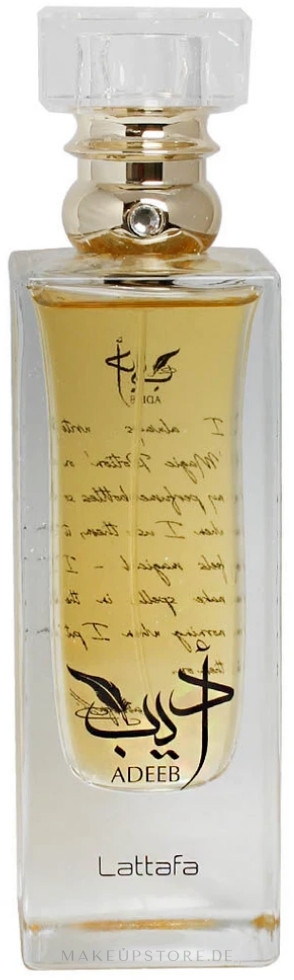 أديب
ADEEB
I always write
Magic Potion on
my perfume bottles so
when I use them, it
feels magical - I
make spells in the
morning when I put
them on.
أديب
ADEEB
Lattafa
MAKEUPSTORE.DE